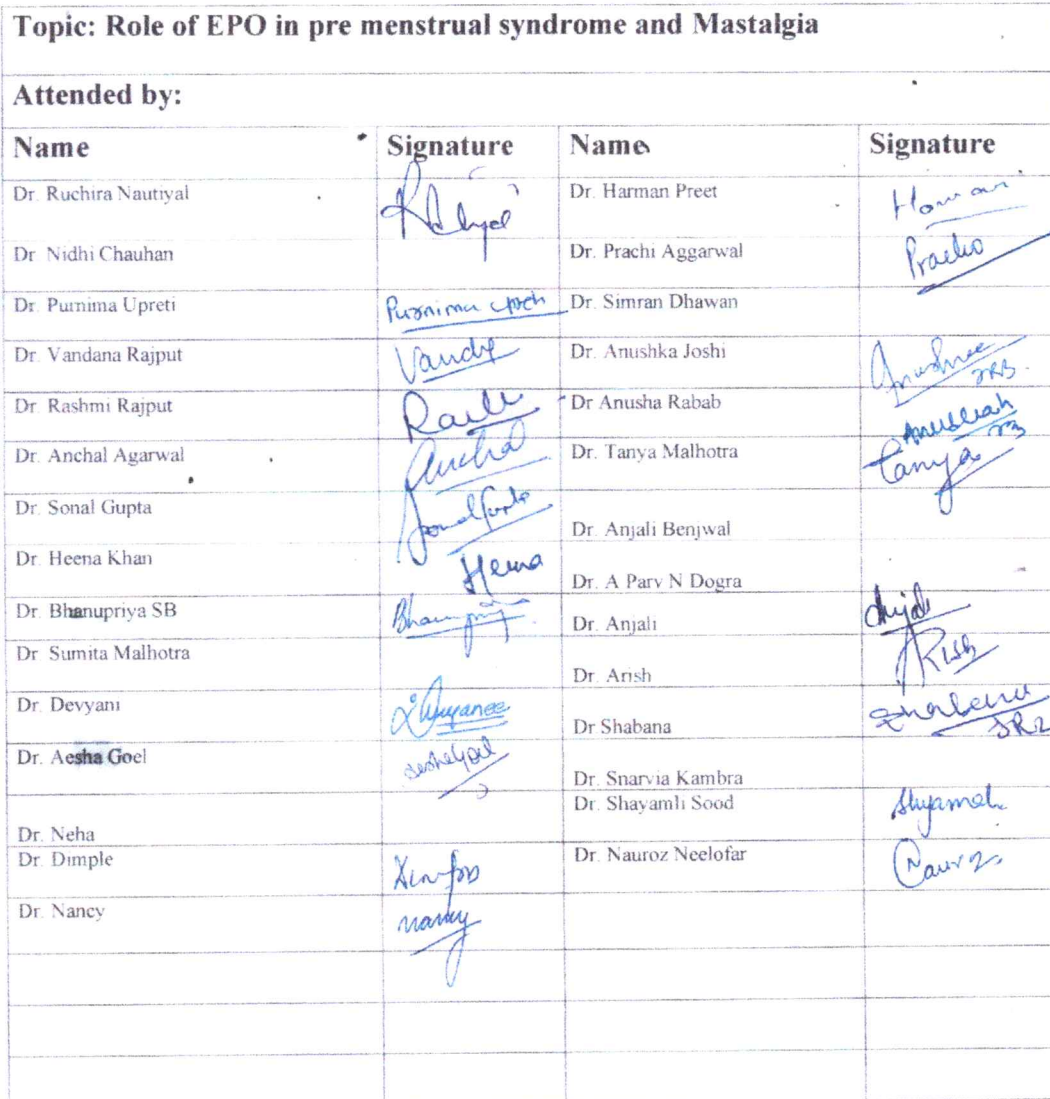 Topic: Role of EPO in pre menstrual syndrome and Mastalgia
Attended by:
Name Signature Name Signature
Dr. Ruchira Nautiyal Dr. Harman Preet Harman
Dr Nidhi Chauhan Dr. Prachi Aggarwal Prachi
Dr. Purnima Upreti Purnima Upreti Dr. Simran Dhawan
Dr. Vandana Rajput Dr. Anushka Joshi
Dr. Rashmi Rajput Dr Anusha Rabab
Dr. Anchal Agarwal Anchal Dr. Tanya Malhotra Tanya
Dr. Sonal Gupta Sonal Gupta Dr. Anjali Benjwal
Dr. Heena Khan Heena Dr. A Parv N Dogra
Dr. Bhanupriya SB Bhanupriya Dr. Anjali Anjali
Dr Sumita Malhotra Dr. Arish
Dr. Devyani Dr Shabana Shabana JR2
Dr. Aesha Goel Aesha Goel Dr. Snarvia Kambra
Dr. Neha Dr. Shayamli Sood Shyamal
Dr. Dimple Dr. Nauroz Neelofar Nauroz
Dr. Nancy nancy